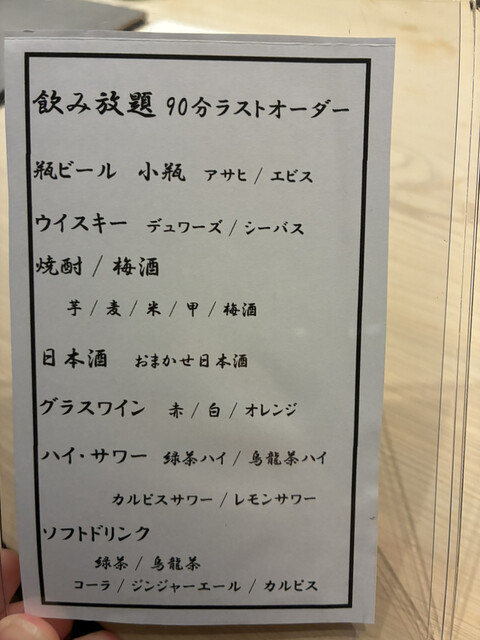 飲み放題 90分ラストオーダー
瓶ビール 小瓶 アサヒ / エビス
ウイスキー デュワーズ / シーバス
焼酎 / 梅酒
芋 / 麦 / 米 / 甲 / 梅酒
日本酒 おまかせ日本酒
グラスワイン 赤 / 白 / オレンジ
ハイ・サワー 緑茶ハイ / 烏龍茶ハイ
カルピスサワー / レモンサワー
ソフトドリンク
緑茶 / 烏龍茶
コーラ / ジンジャーエール / カルピス